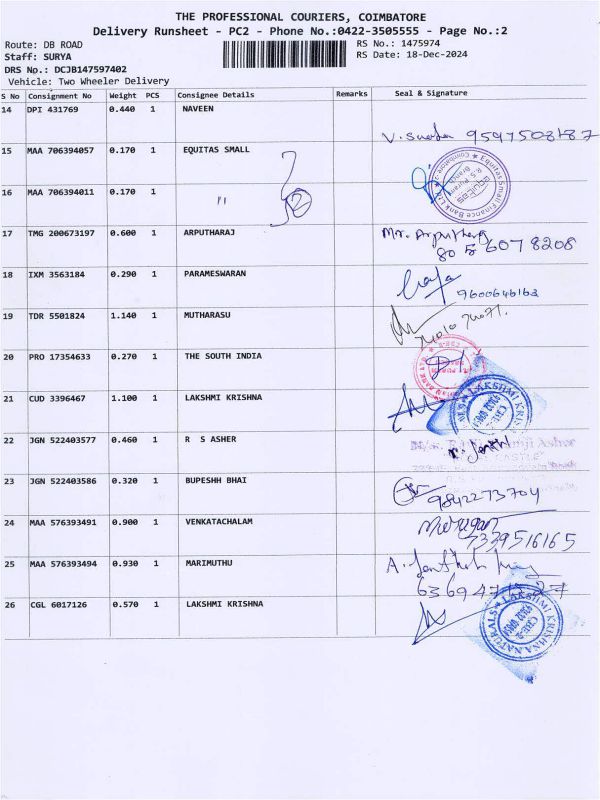 THE PROFESSIONAL COURIERS, COIMBATORE
Delivery Runsheet - PC2 - Phone No.:0422-3505555 - Page No.:2
Route: DB ROAD RS No.: 1475974
Staff: SURYA RS Date: 18-Dec-2024
DRS No.: DCJB147597402
Vehicle: Two Wheeler Delivery
S No Consignment No Weight PCS Consignee Details Remarks Seal & Signature
14 DPI 431769 0.440 1 NAVEEN
15 MAA 706394057 0.170 1 EQUITAS SMALL
16 MAA 706394011 0.170 1 "
17 TMG 200673197 0.600 1 ARPUTHARAJ
8056078208
18 IXM 3563184 0.290 1 PARAMESWARAN
9600646163
19 TDR 5501824 1.140 1 MUTHARASU
20 PRO 17354633 0.270 1 THE SOUTH INDIA
21 CUD 3396467 1.100 1 LAKSHMI KRISHNA
LAKSHMI KRISHNA
22 JGN 522403577 0.460 1 R S ASHER
23 JGN 522403586 0.320 1 BUPESHH BHAI
9842273704
24 MAA 576393491 0.900 1 VENKATACHALAM
Murugan
7339516165
25 MAA 576393494 0.930 1 MARIMUTHU
26 CGL 6017126 0.570 1 LAKSHMI KRISHNA
LAKSHMI KRISHNA NATURALS